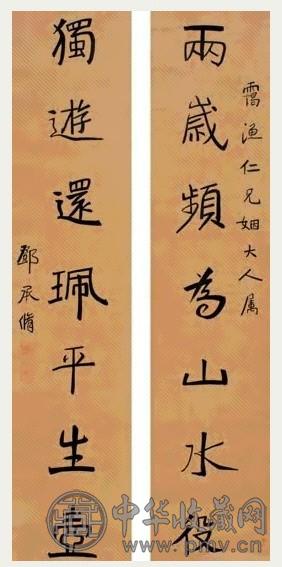 靄漁仁兄姻大人属
兩歲頻為山水役
獨遊還珮平生壺
鄧承脩
中华收藏网
www.pmv.cn